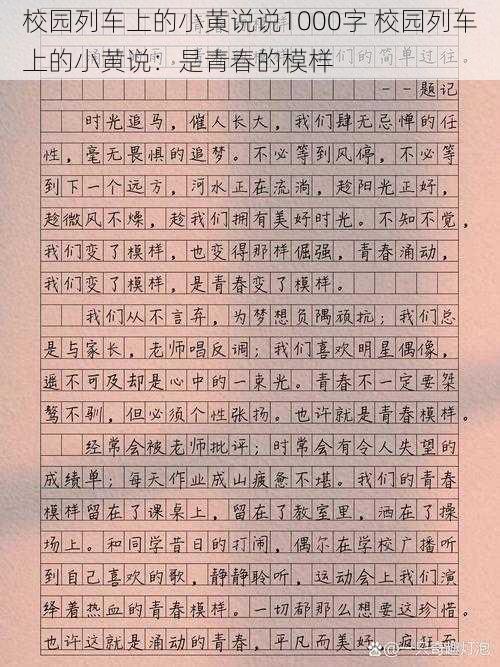 校园列车上的小黄说说1000字 校园列车
上的小黄说：是青春的模样
的简单过往。
——题记
时光追马，催人长大，我们肆无忌惮的任
性，毫无畏惧的追梦。不必等到风停，不必等
到下一个远方，河水正在流淌，趁阳光正好，
趁微风不燥，趁我们拥有美好时光。不知不觉，
我们变了模样，也变得那样倔强，青春涌动，
我们变了模样，是青春变了模样。
我们从不言弃，为梦想负隅顽抗；我们总
是与家长，老师唱反调；我们喜欢明星偶像，
遥不可及却是心中的一束光。青春不一定要桀
骜不驯，但必须个性张扬。也许就是青春模样。
经常会被老师批评；时常会有令人失望的
成绩单；每天作业成山疲惫不堪。我们的青春
模样留在了课桌上，留在了教室里，洒在了操
场上。和同学昔日的打闹，偶尔在学校广播听
到自己喜欢的歌，静静聆听，运动会上我们演
绎着热血的青春模样。一切都那么想要这珍惜。
也许这就是涌动的青春，平凡而美好，疯狂而
一只奇趣灯泡